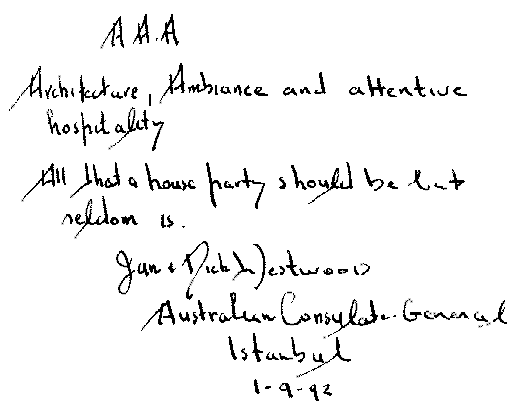 A A.A
Architecture, Ambiance and attentive
hospitality
All that a house party should be but
seldom is.
Jan + Nick Westwood
Australian Consulate-General
Istanbul
1-9-92